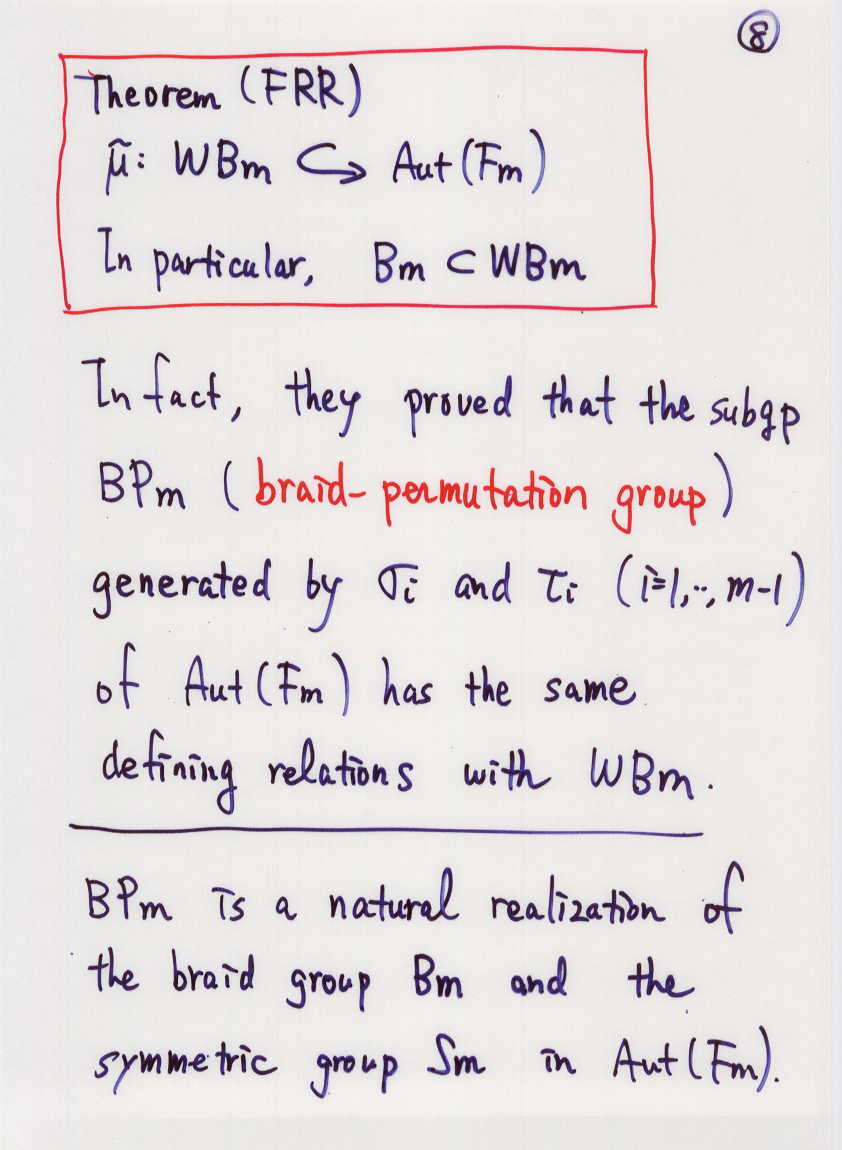 ⑧
Theorem (FRR)
μ̃: WBm ↪ Aut(Fm)
In particular, Bm ⊂ WBm
In fact, they proved that the subgp
BPm (braid-permutation group)
generated by σi and τi (i=1,··, m-1)
of Aut(Fm) has the same
defining relations with WBm.
BPm is a natural realization of
the braid group Bm and the
symmetric group Sm in Aut(Fm).